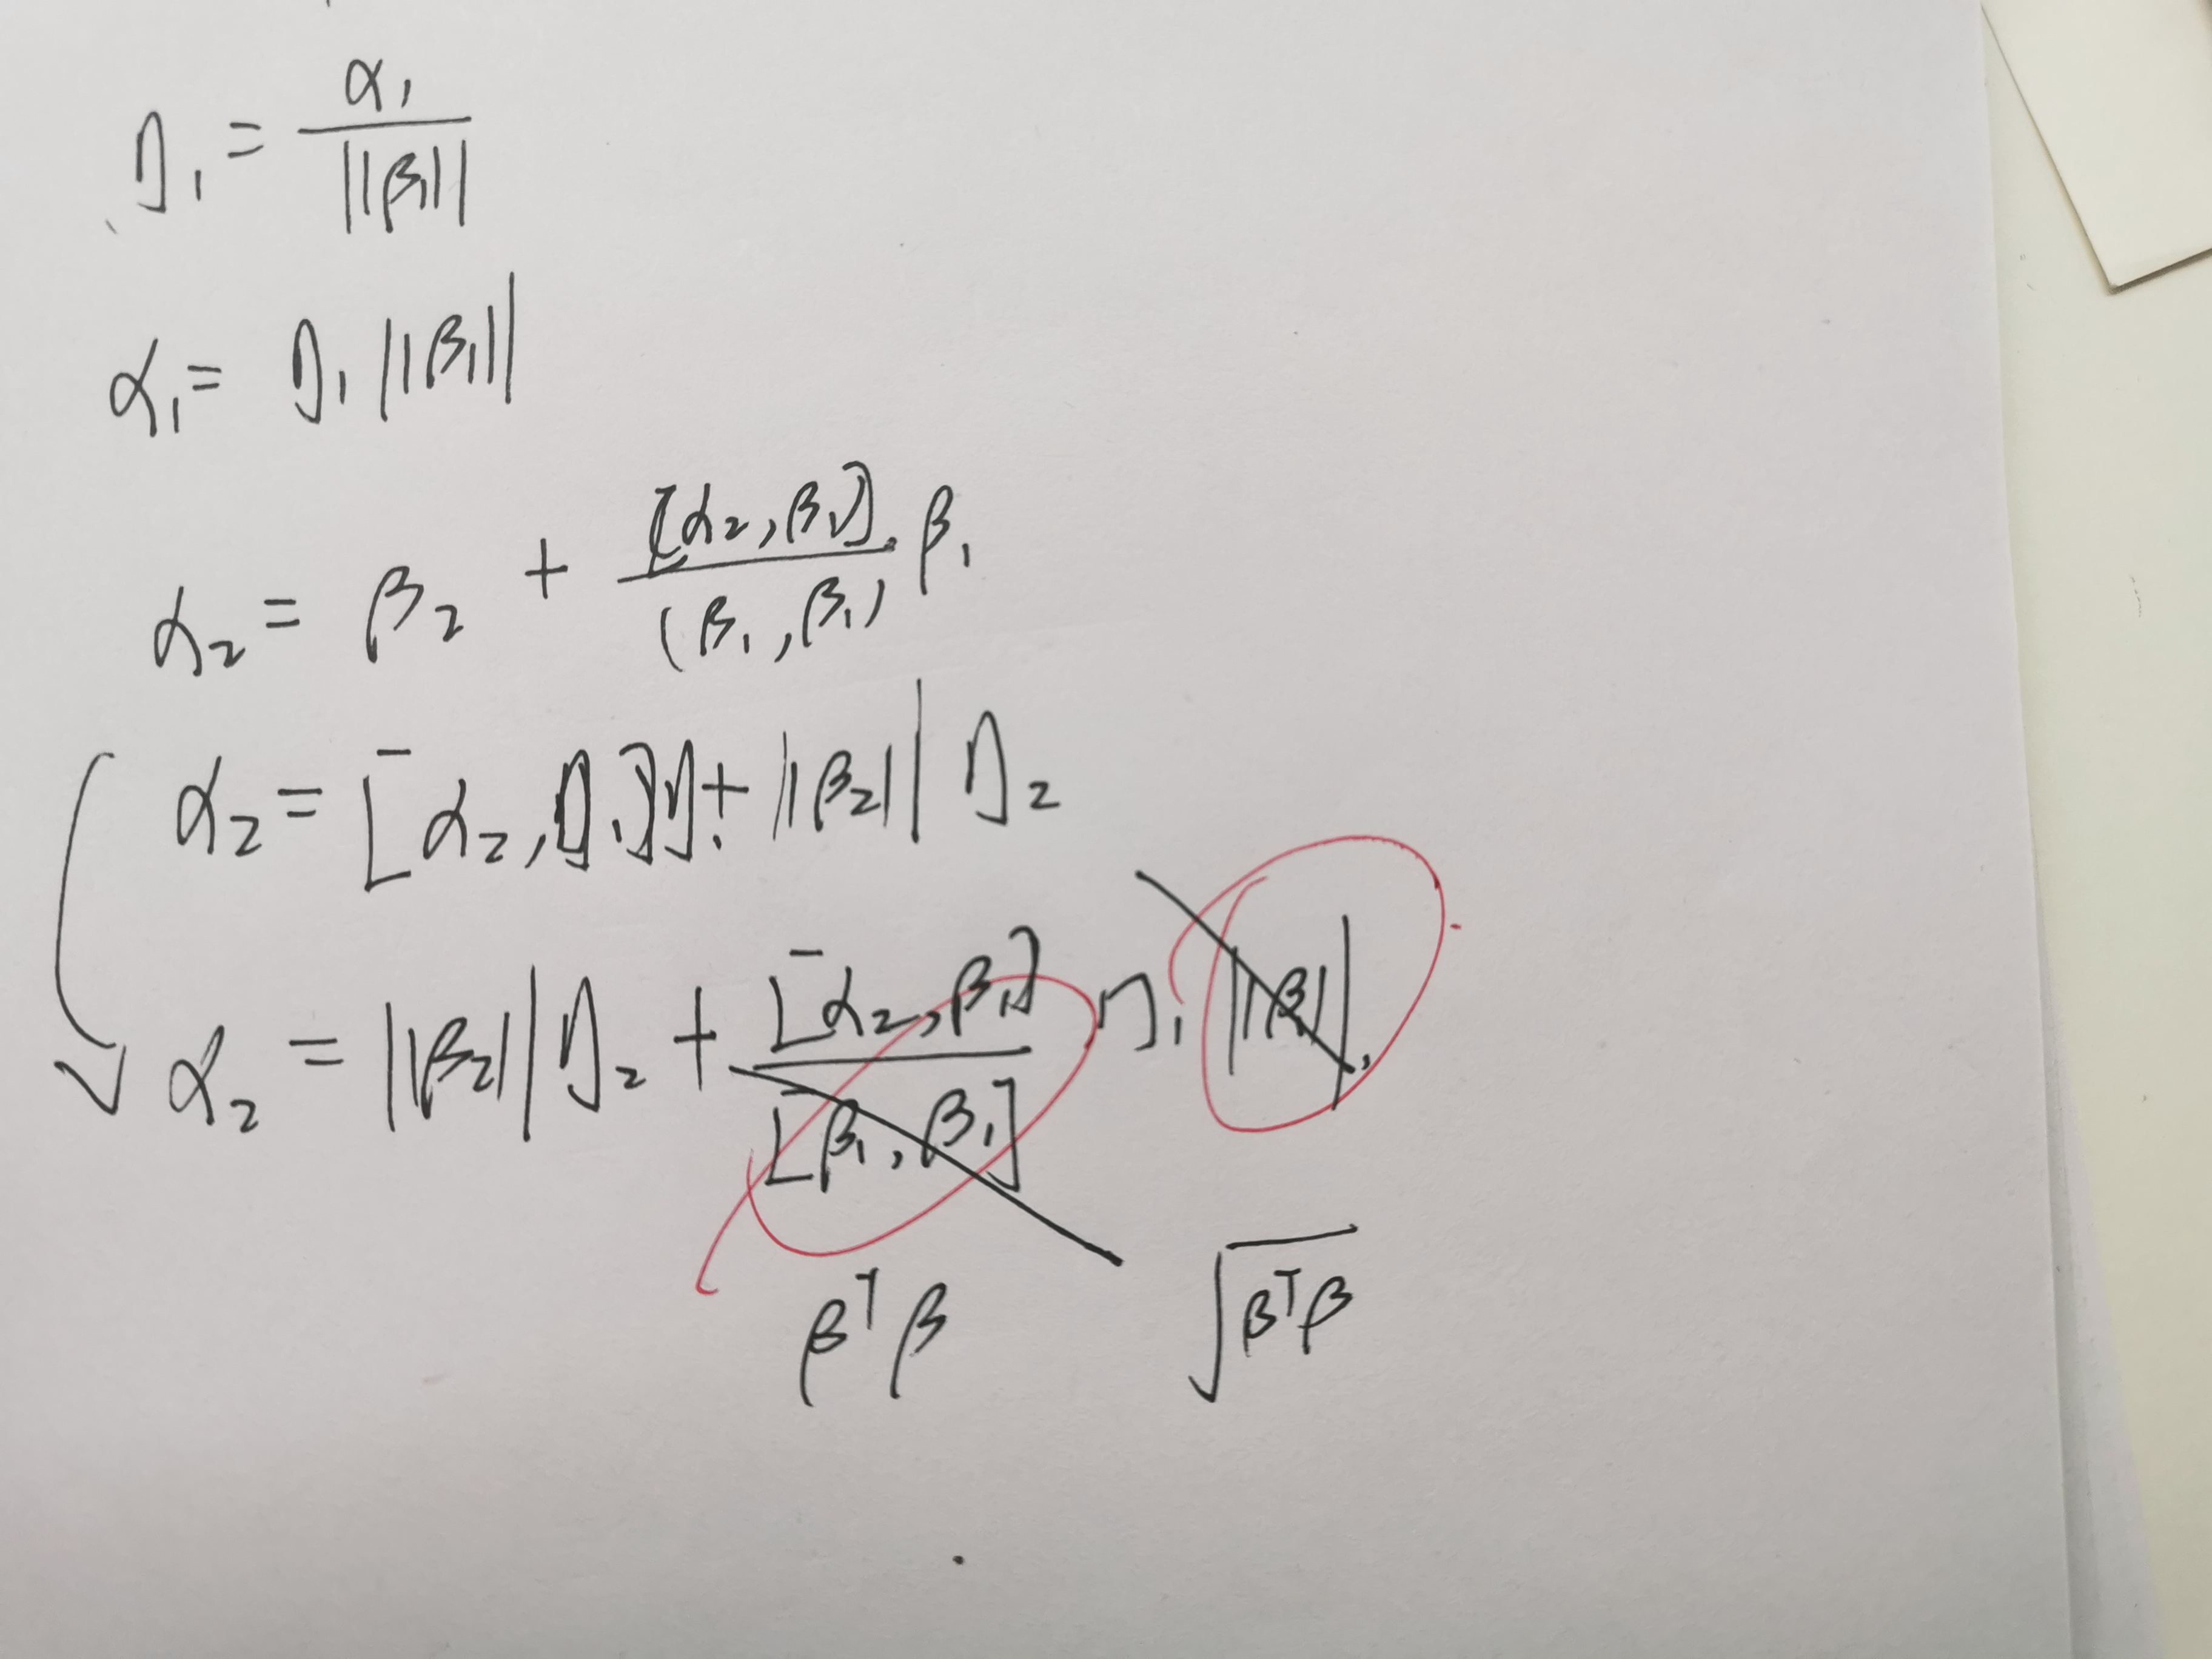 η₁ = α₁ / ||β₁||
α₁ = η₁ ||β₁||
α₂ = β₂ + [α₂, β₁] / (β₁, β₁) · β₁
α₂ = [α₂, η₁]η₁ + ||β₂|| η₂
α₂ = ||β₂|| η₂ + [α₂, β₁] / [β₁, β₁] η₁ ||β₁||.
βᵀβ √(βᵀβ)